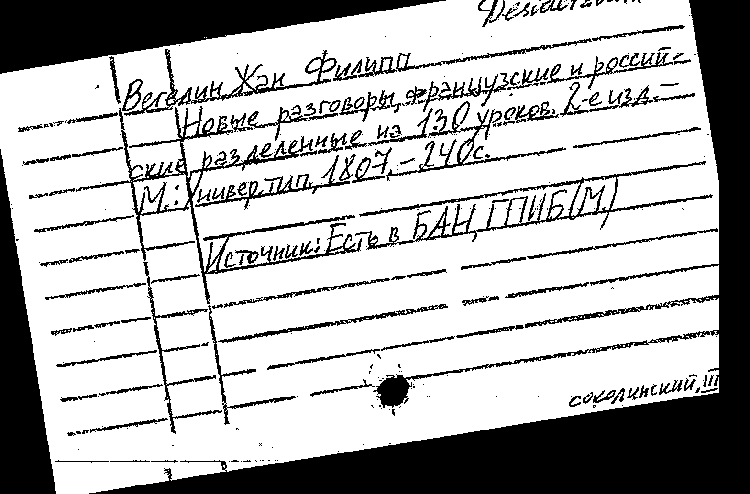 Desiderata
Вегелин, Жан Филипп
Новые разговоры, французские и россий-
ские, разделенные на 130 уроков. 2-е изд. –
М.: Универ. тип., 1807. – 240с.
Источник: Есть в БАН, ГПИБ(М.)
соколинский, III